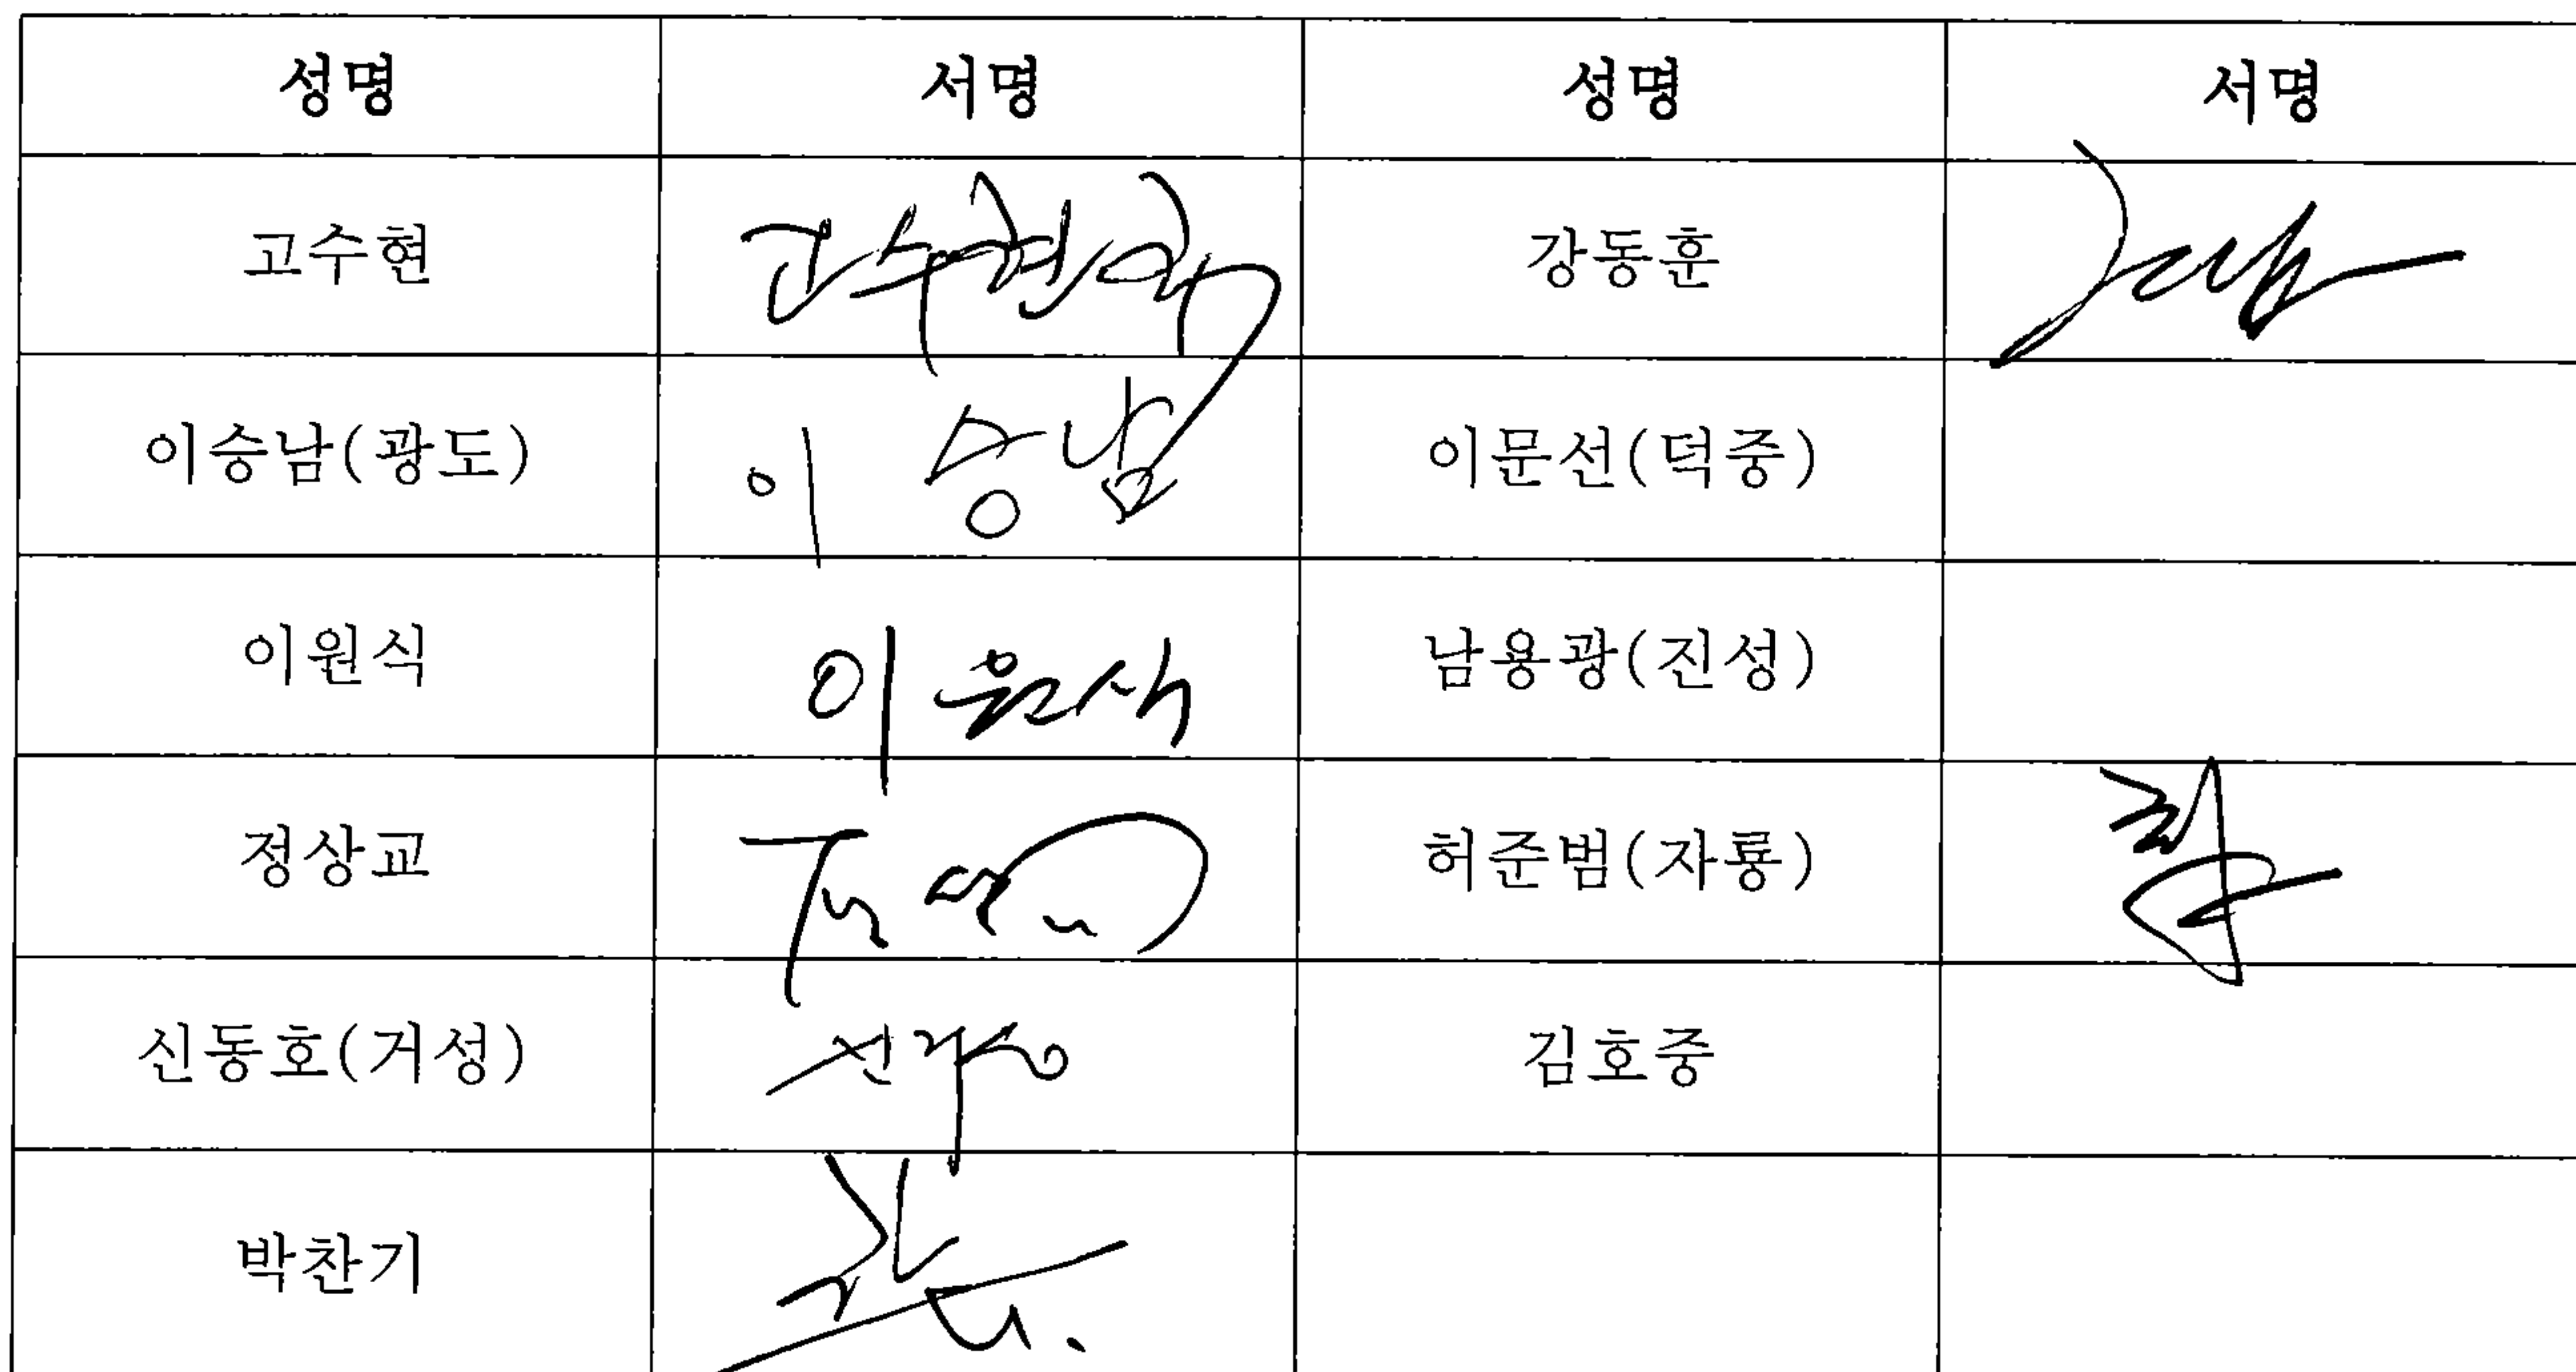 성명 서명 성명 서명
고수현 고수현 강동훈
이승남(광도) 이승남 이문선(덕중)
이원식 이원식 남용광(진성)
정상교 허준범(자룡)
신동호(거성) 김호중
박찬기